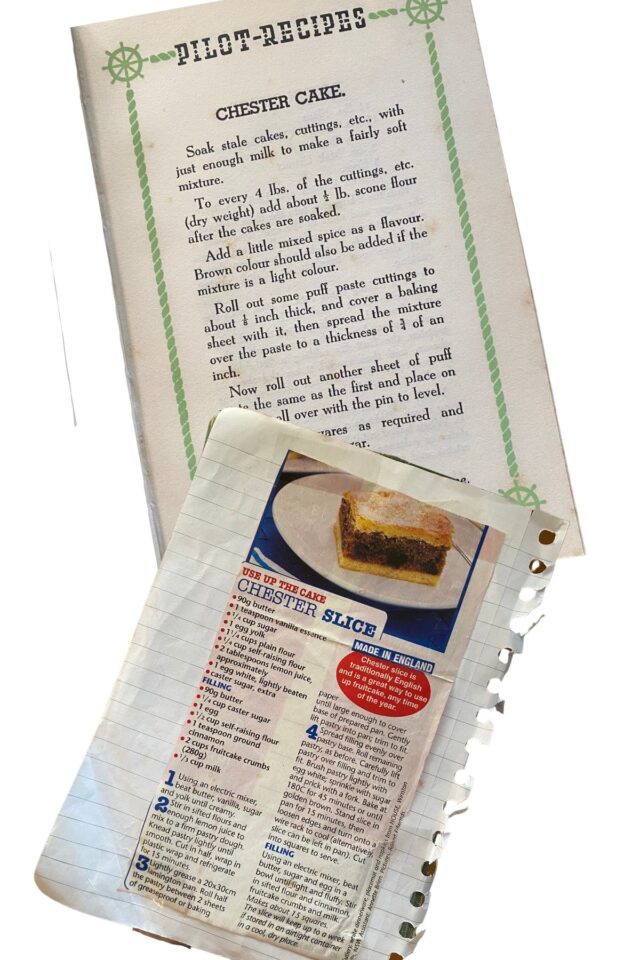 PILOT-RECIPES
CHESTER CAKE.
Soak stale cakes, cuttings, etc., with
just enough milk to make a fairly soft
mixture.
To every 4 lbs. of the cuttings, etc.
(dry weight) add about ½ lb. scone flour
after the cakes are soaked.
Add a little mixed spice as a flavour.
Brown colour should also be added if the
mixture is a light colour.
Roll out some puff paste cuttings to
about ⅛ inch thick, and cover a baking
sheet with it, then spread the mixture
over the paste to a thickness of ¾ of an
inch.
Now roll out another sheet of puff
the same as the first and place on
roll over with the pin to level.
as required and
USE UP THE CAKE
CHESTER SLICE
• 90g butter
• 1 teaspoon vanilla essence
• ¼ cup sugar
• 1 egg yolk
• 1¼ cups plain flour
• ¼ cup self-raising flour
• 2 tablespoons lemon juice,
approximately
• 1 egg white, lightly beaten
• caster sugar, extra
FILLING
• 90g butter
• ¼ cup caster sugar
• 1 egg
• ½ cup self-raising flour
• 1 teaspoon ground
cinnamon
• 2 cups fruitcake crumbs
(280g)
• ⅓ cup milk
1 Using an electric mixer,
beat butter, vanilla, sugar
and yolk until creamy.
2 Stir in sifted flours and
enough lemon juice to
mix to a firm pastry dough.
Knead pastry lightly until
smooth. Cut in half, wrap in
plastic wrap and refrigerate
for 15 minutes.
3 Lightly grease a 20x30cm
lamington pan. Roll half
the pastry between 2 sheets
of greaseproof or baking
MADE IN ENGLAND
Chester slice is
traditionally English
and is a great way to use
up fruitcake, any time
of the year.
paper
until large enough to cover
base of prepared pan. Gently
lift pastry into pan; trim to fit.
4 Spread filling evenly over
pastry base. Roll remaining
pastry, as before. Carefully lift
pastry over filling and trim to
fit. Brush pastry lightly with
egg white, sprinkle with sugar
and prick with a fork. Bake at
180C for 45 minutes or until
golden brown. Stand slice in
pan for 15 minutes, then
loosen edges and turn onto a
wire rack to cool (alternatively,
slice can be left in pan). Cut
into squares to serve.
FILLING
Using an electric mixer, beat
butter, sugar and egg in a
bowl until light and fluffy. Stir
in sifted flour and cinnamon,
fruitcake crumbs and milk.
Makes about 15 squares.
The slice will keep up to a week
if stored in an airtight container
in a cool, dry place.